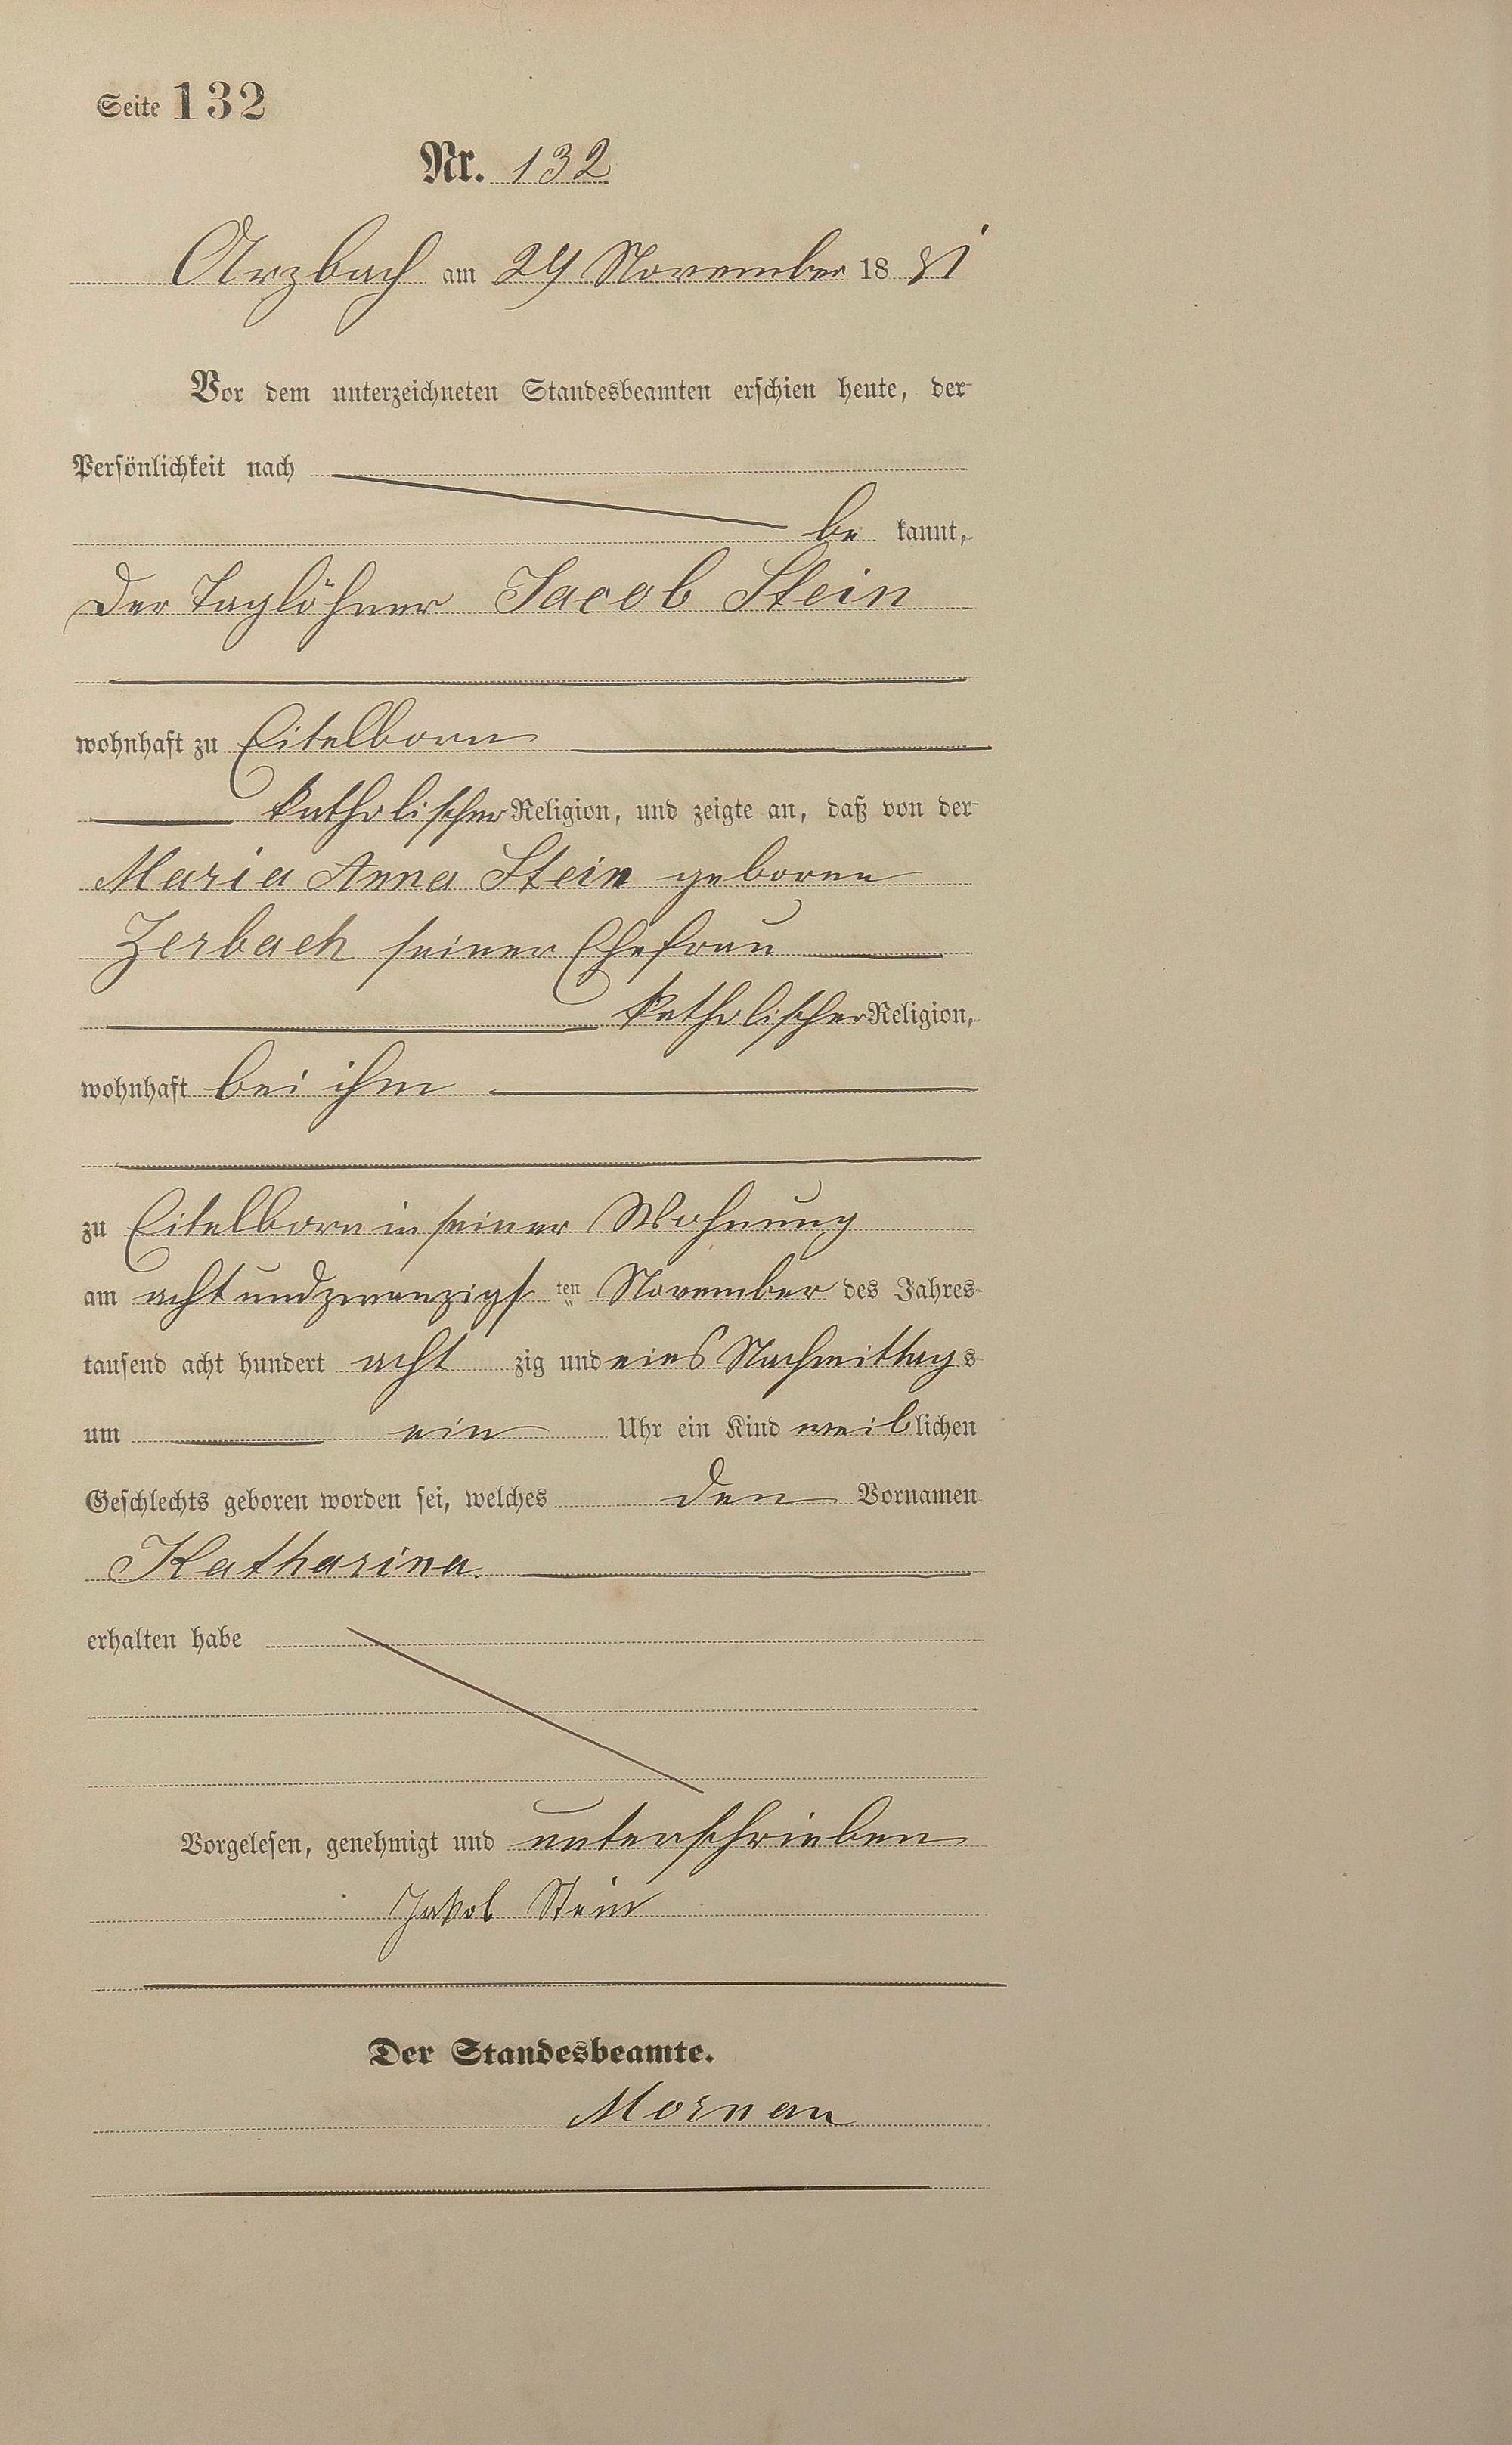 Seite 132
Nr. 132
Arzbach am 29 November 18 81
Vor dem unterzeichneten Standesbeamten erschien heute, der
Persönlichkeit nach
be kannt,
Der Taglöhner Jacob Stein
wohnhaft zu Eitelborn
katholischer Religion, und zeigte an, daß von der
Maria Anna Stein geborene
Zerbach seiner Ehefrau
katholischer Religion,
wohnhaft bei ihm
zu Eitelborn in seiner Wohnung
am acht und zwanzigsten November des Jahres
tausend acht hundert acht zig und eins Nachmittags
um ein Uhr ein Kind weiblichen
Geschlechts geboren worden sei, welches den Vornamen
Katharina
erhalten habe
Vorgelesen, genehmigt und unterschrieben
Jakob Stein
Der Standesbeamte.